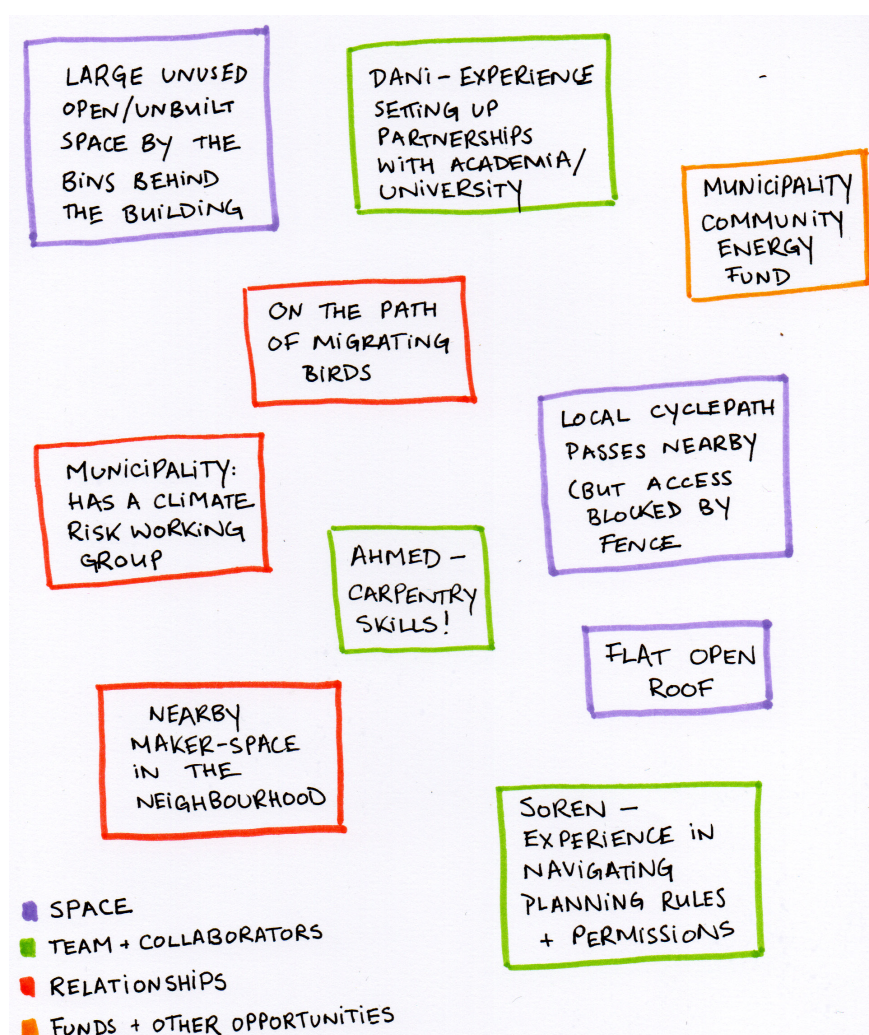 LARGE UNUSED
OPEN/UNBUILT
SPACE BY THE
BINS BEHIND
THE BUILDING
DANI – EXPERIENCE
SETTING UP
PARTNERSHIPS
WITH ACADEMIA/
UNIVERSITY
MUNICIPALITY
COMMUNITY
ENERGY
FUND
ON THE PATH
OF MIGRATING
BIRDS
LOCAL CYCLEPATH
PASSES NEARBY
(BUT ACCESS
BLOCKED BY
FENCE
MUNICIPALITY:
HAS A CLIMATE
RISK WORKING
GROUP
AHMED –
CARPENTRY
SKILLS!
FLAT OPEN
ROOF
NEARBY
MAKER-SPACE
IN THE
NEIGHBOURHOOD
SOREN –
EXPERIENCE IN
NAVIGATING
PLANNING RULES
+ PERMISSIONS
SPACE
TEAM + COLLABORATORS
RELATIONSHIPS
FUNDS + OTHER OPPORTUNITIES